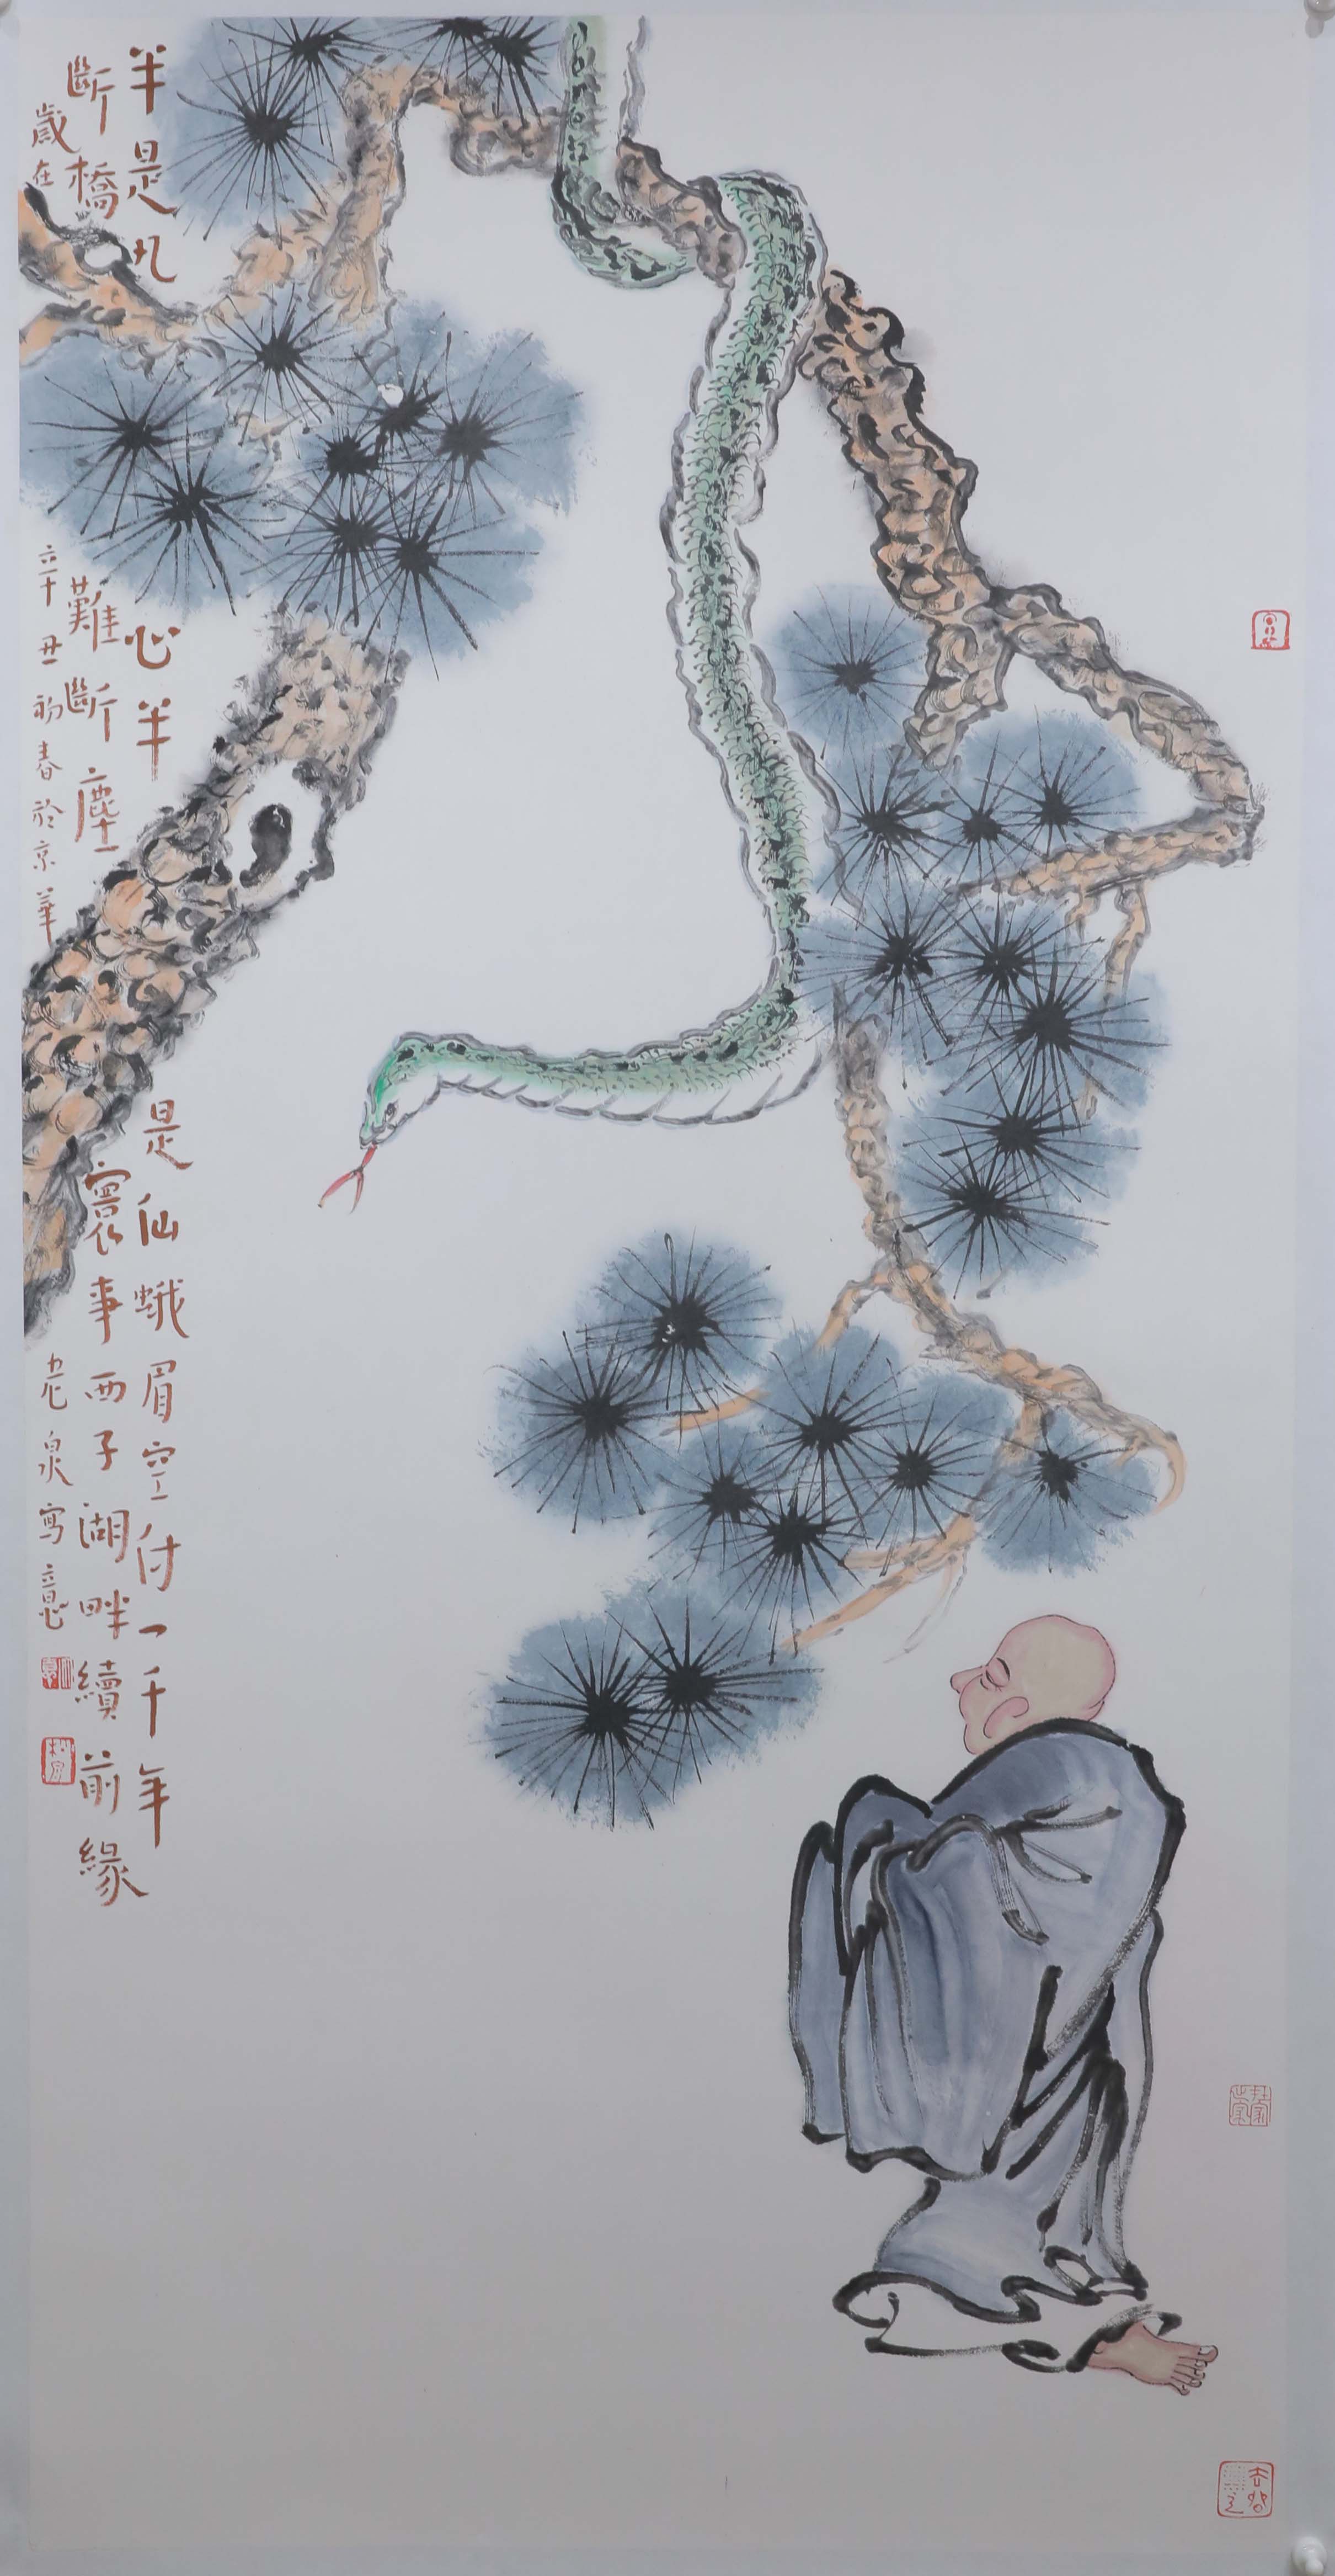 半是凡心半是仙蛾眉空付一千年
斷橋難斷塵寰事西子湖畔續前緣
歲在辛丑初春於京華老泉寫意